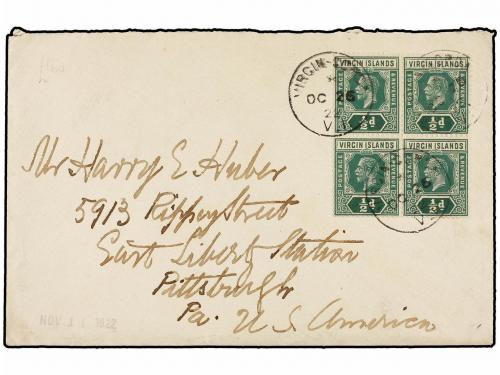 VIRGIN ISLANDS
POSTAGE & REVENUE
½d
VIRGIN ISLANDS
POSTAGE & REVENUE
½d
VIRGIN ISLANDS
POSTAGE
½d
VIRGIN ISLANDS
& REVENUE
½d
VIRGIN
OC 26
22
V.I.
OC 26
Mr Harry E Huber
5913 Rippey Street
East Liberty Station
Pittsburgh
Pa. U.S. America
NOV 11 1922